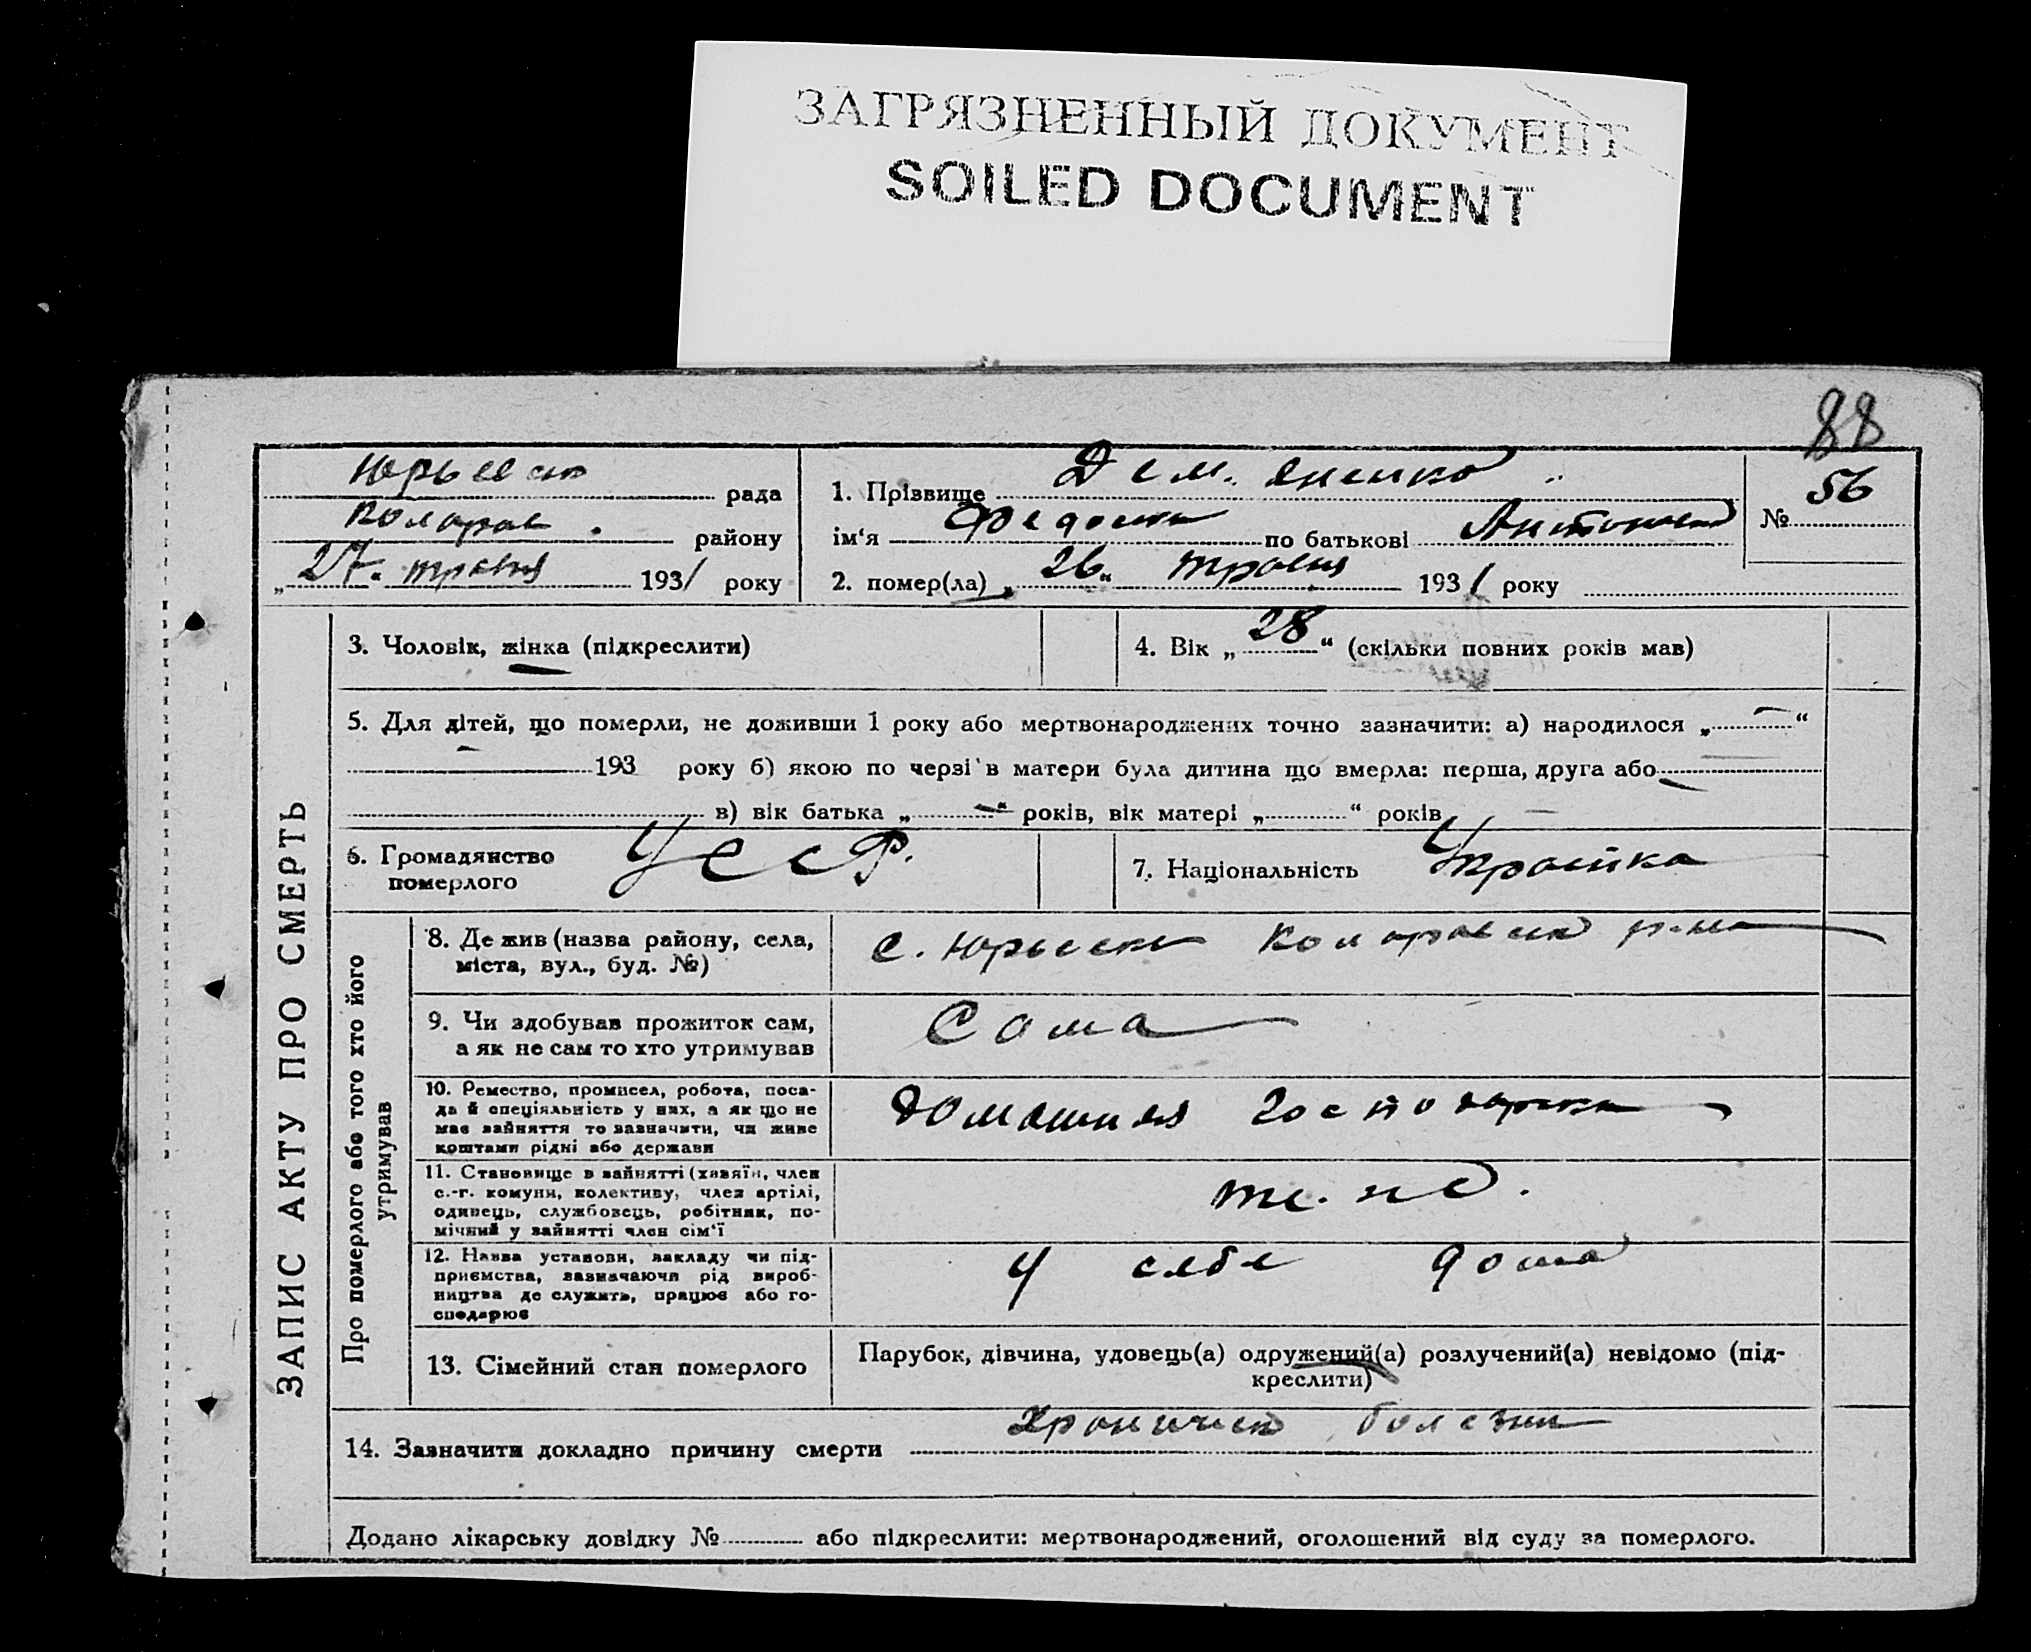 ЗАГРЯЗНЕННЫЙ ДОКУМЕНТ
SOILED DOCUMENT
88
Юрьевск рада
Коларов. району
„27. травня 1931 року
1. Прізвище Дем. яненко
ім‘я Федоська по батькові Антонов
№ 56
2. помер(ла) „26“ травня 1931 року
ЗАПИС АКТУ ПРО СМЕРТЬ
3. Чоловік, жінка (підкреслити)
4. Вік „28“ (скільки повних років мав)
5. Для дітей, що померли, не доживши 1 року або мертвонароджених точно зазначити: а) народилося „—“
— 193 року б) якою по черзі в матери була дитина що вмерла: перша, друга або
в) вік батька „—“ років, вік матері „ “ років —
6. Громадянство
померлого
УССР.
7. Національність Українка
Про померлого або того хто його
утримував
8. Де жив (назва району, села,
міста, вул., буд. №)
с. Юрьевка Коларовск р-на
9. Чи здобував прожиток сам,
а як не сам то хто утримував
Сама
10. Ремество, промисел, робота, поса-
да й спеціяльність у них, а як що не
має зайняття то зазначити, чи живе
коштами рідні або держави
домашняя господарка
11. Становище в зайнятті (хазяїн, член
с.-г. комуни, колективу, член артілі,
одинець, службовець, робітник, по-
мічний у зайнятті член сім‘ї
12. Назва установи, закладу чи під-
приємства, зазначаючи рід вироб-
ництва де служить, працює або го-
сподарює
У себе дома
13. Сімейний стан померлого
Парубок, дівчина, удовець(а) одружений(а) розлучений(а) невідомо (під-
креслити)
14. Зазначити докладно причину смерти Хроническ болезни
Додано лікарську довідку № або підкреслити: мертвонароджений, оголошений від суду за померлого.